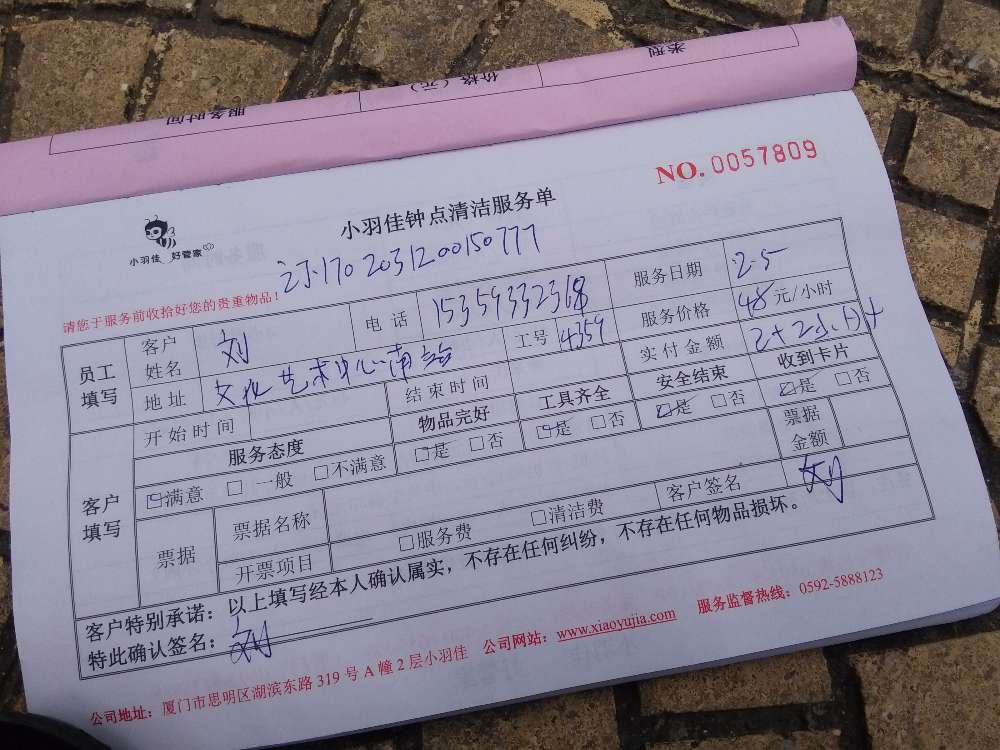 类型
价格（元）
服务时间
NO.0057809
小羽佳 好管家
小羽佳钟点清洁服务单
1702031200150777
请您于服务前收拾好您的贵重物品！
员工填写 客户姓名 刘 电话 服务日期 2.5
地址 文化艺术中心南 工号 4359 服务价格 48元/小时
开始时间 结束时间 实付金额 2+2小时
客户填写 服务态度 物品完好 工具齐全 安全结束 收到卡片
□满意 □一般 □不满意 □是 □否 □是 □否 □是 □否 □是 □否
票据 票据名称 票据金额
开票项目 □服务费 □清洁费 客户签名 刘
客户特别承诺：以上填写经本人确认属实，不存在任何纠纷，不存在任何物品损坏。
特此确认签名：刘
公司地址：厦门市思明区湖滨东路319号A幢2层小羽佳 公司网站：www.xiaoyujia.com 服务监督热线：0592-5888123